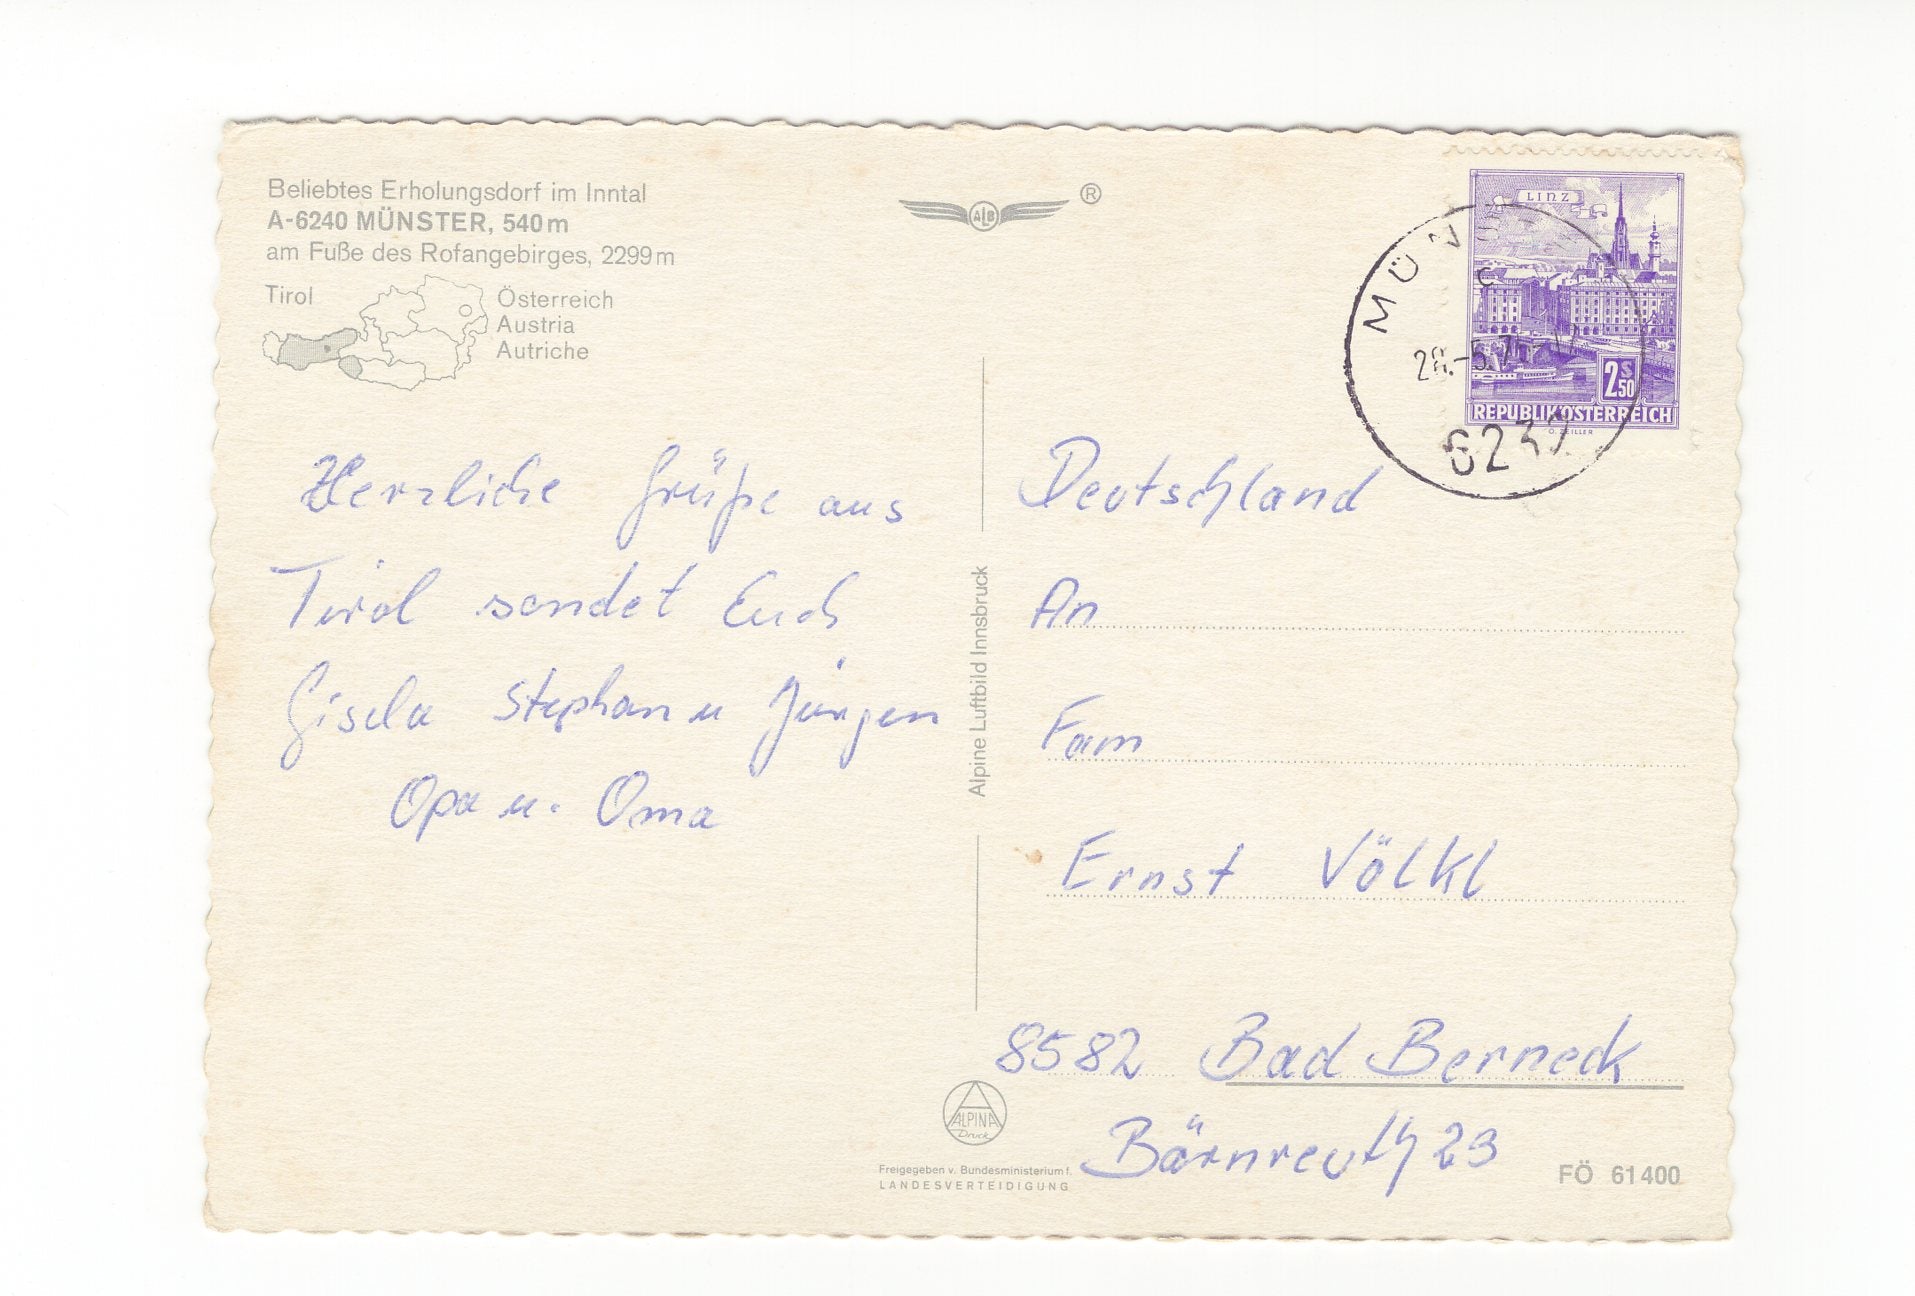 Beliebtes Erholungsdorf im Inntal
A-6240 MÜNSTER, 540 m
am Fuße des Rofangebirges, 2299 m
Tirol
Österreich
Austria
Autriche
ALB
®
LINZ
2S50
REPUBLIK ÖSTERREICH
O. ZEILLER
MÜN
c
28.-5.
Herzliche Grüße aus
Tirol sendet Euch
Gisela Stephan u Jürgen
Opa u. Oma
Alpine Luftbild Innsbruck
Deutschland
An
Fam
Ernst Völkl
8582 Bad Berneck
Bärnreuth 23
ALPINA
Druck
Freigegeben v. Bundesministerium f.
LANDESVERTEIDIGUNG
FÖ 61400